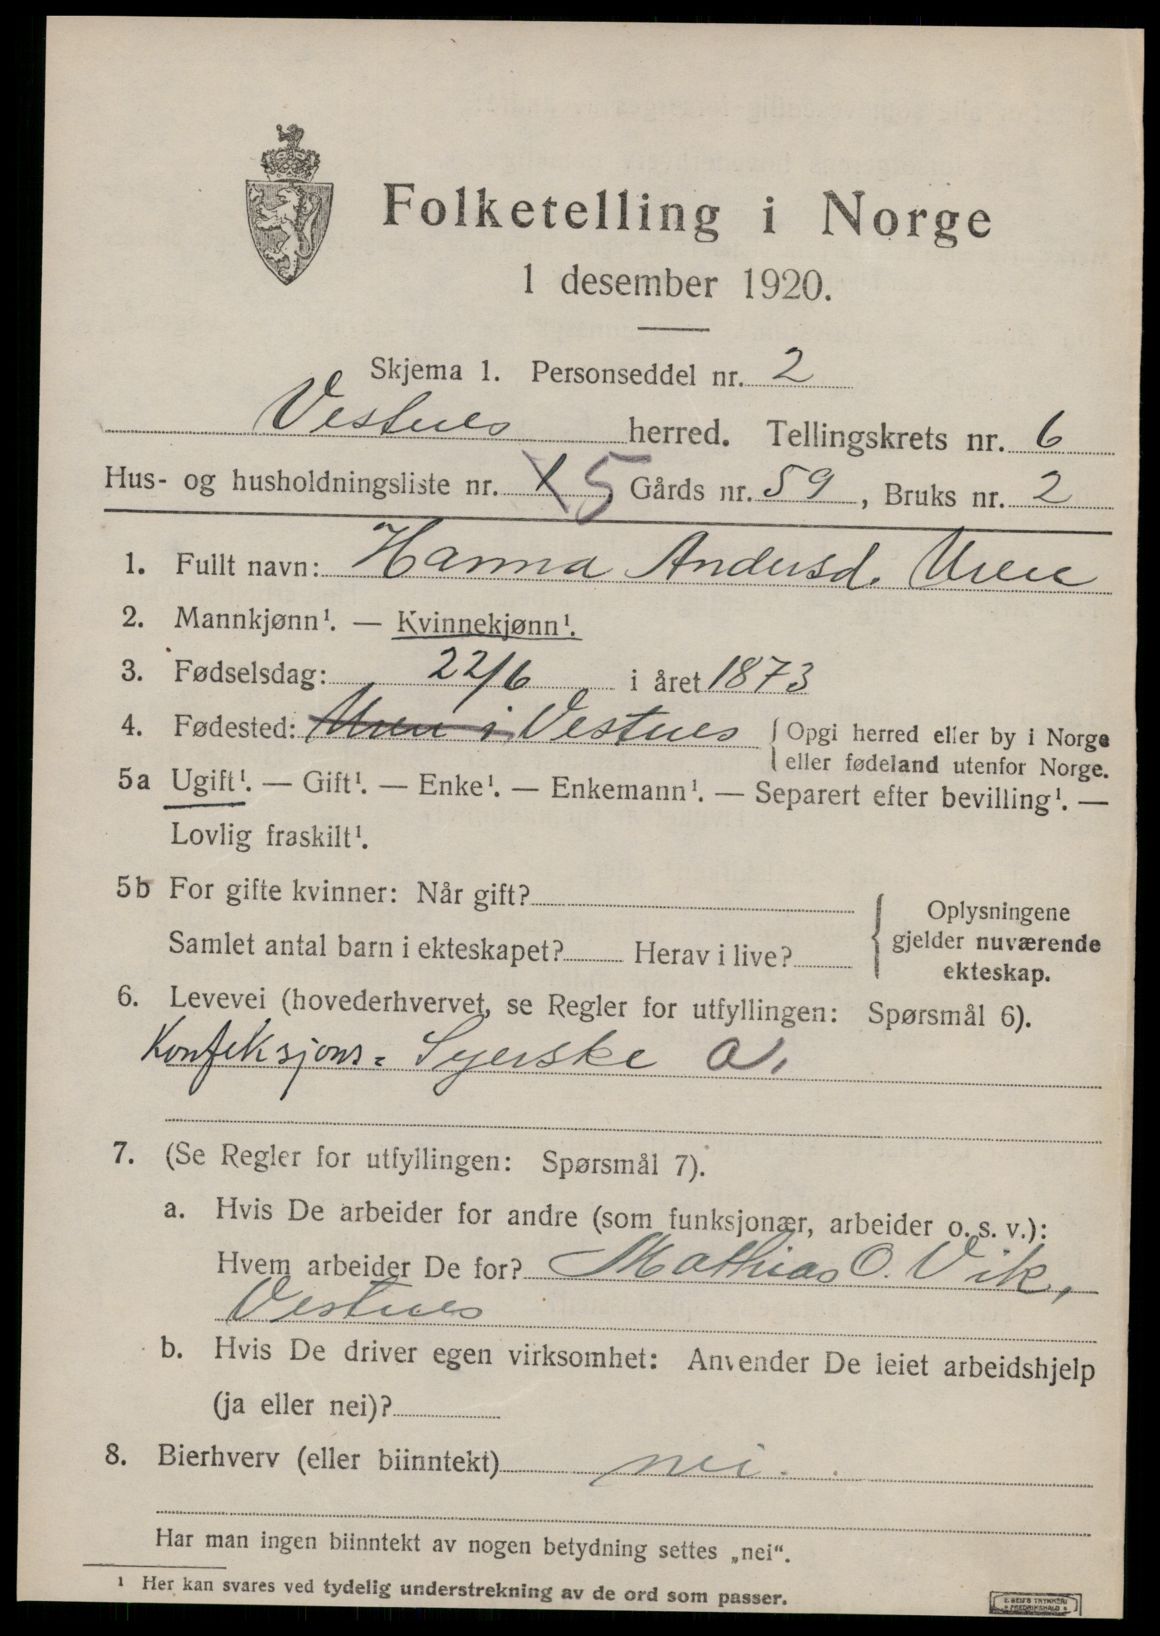 Folketelling i Norge
1 desember 1920.
Skjema 1. Personseddel nr. 2
Vestnes herred. Tellingskrets nr. 6
Hus- og husholdningsliste nr. 1 5 Gårds nr. 59, Bruks nr. 2
1. Fullt navn: Hanna Andersd. Uren
2. Mannkjønn¹. — Kvinnekjønn¹.
3. Fødselsdag: 22/6 i året 1873
4. Fødested: Uren i Vestnes { Opgi herred eller by i Norge
eller fødeland utenfor Norge.
5a Ugift¹. — Gift¹. — Enke¹. — Enkemann¹. — Separert efter bevilling¹. —
Lovlig fraskilt¹.
5b For gifte kvinner: Når gift?
Samlet antal barn i ekteskapet? Herav i live?
Oplysningene
gjelder nuværende
ekteskap.
6. Levevei (hovederhvervet, se Regler for utfyllingen: Spørsmål 6).
Konfeksjons= Syerske a.
7. (Se Regler for utfyllingen: Spørsmål 7).
a. Hvis De arbeider for andre (som funksjonær, arbeider o. s. v.):
Hvem arbeider De for? Mathias O. Vik,
Vestnes
b. Hvis De driver egen virksomhet: Anvender De leiet arbeidshjelp
(ja eller nei)?
8. Bierhverv (eller biinntekt) nei.
Har man ingen biinntekt av nogen betydning settes „nei“.
¹ Her kan svares ved tydelig understrekning av de ord som passer.
E. SEM'S TRYKKERI
FREDRIKSHALD